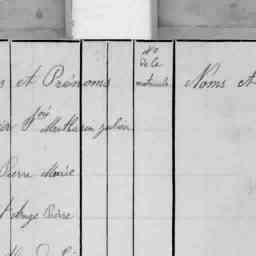 No
de la
matricule
s et Prénoms
Noms et
julien
Pierre Marie
Ange Pierre